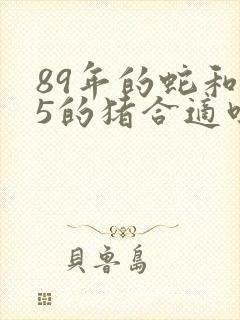 89年的蛇和
5的猪合適
貝魯島